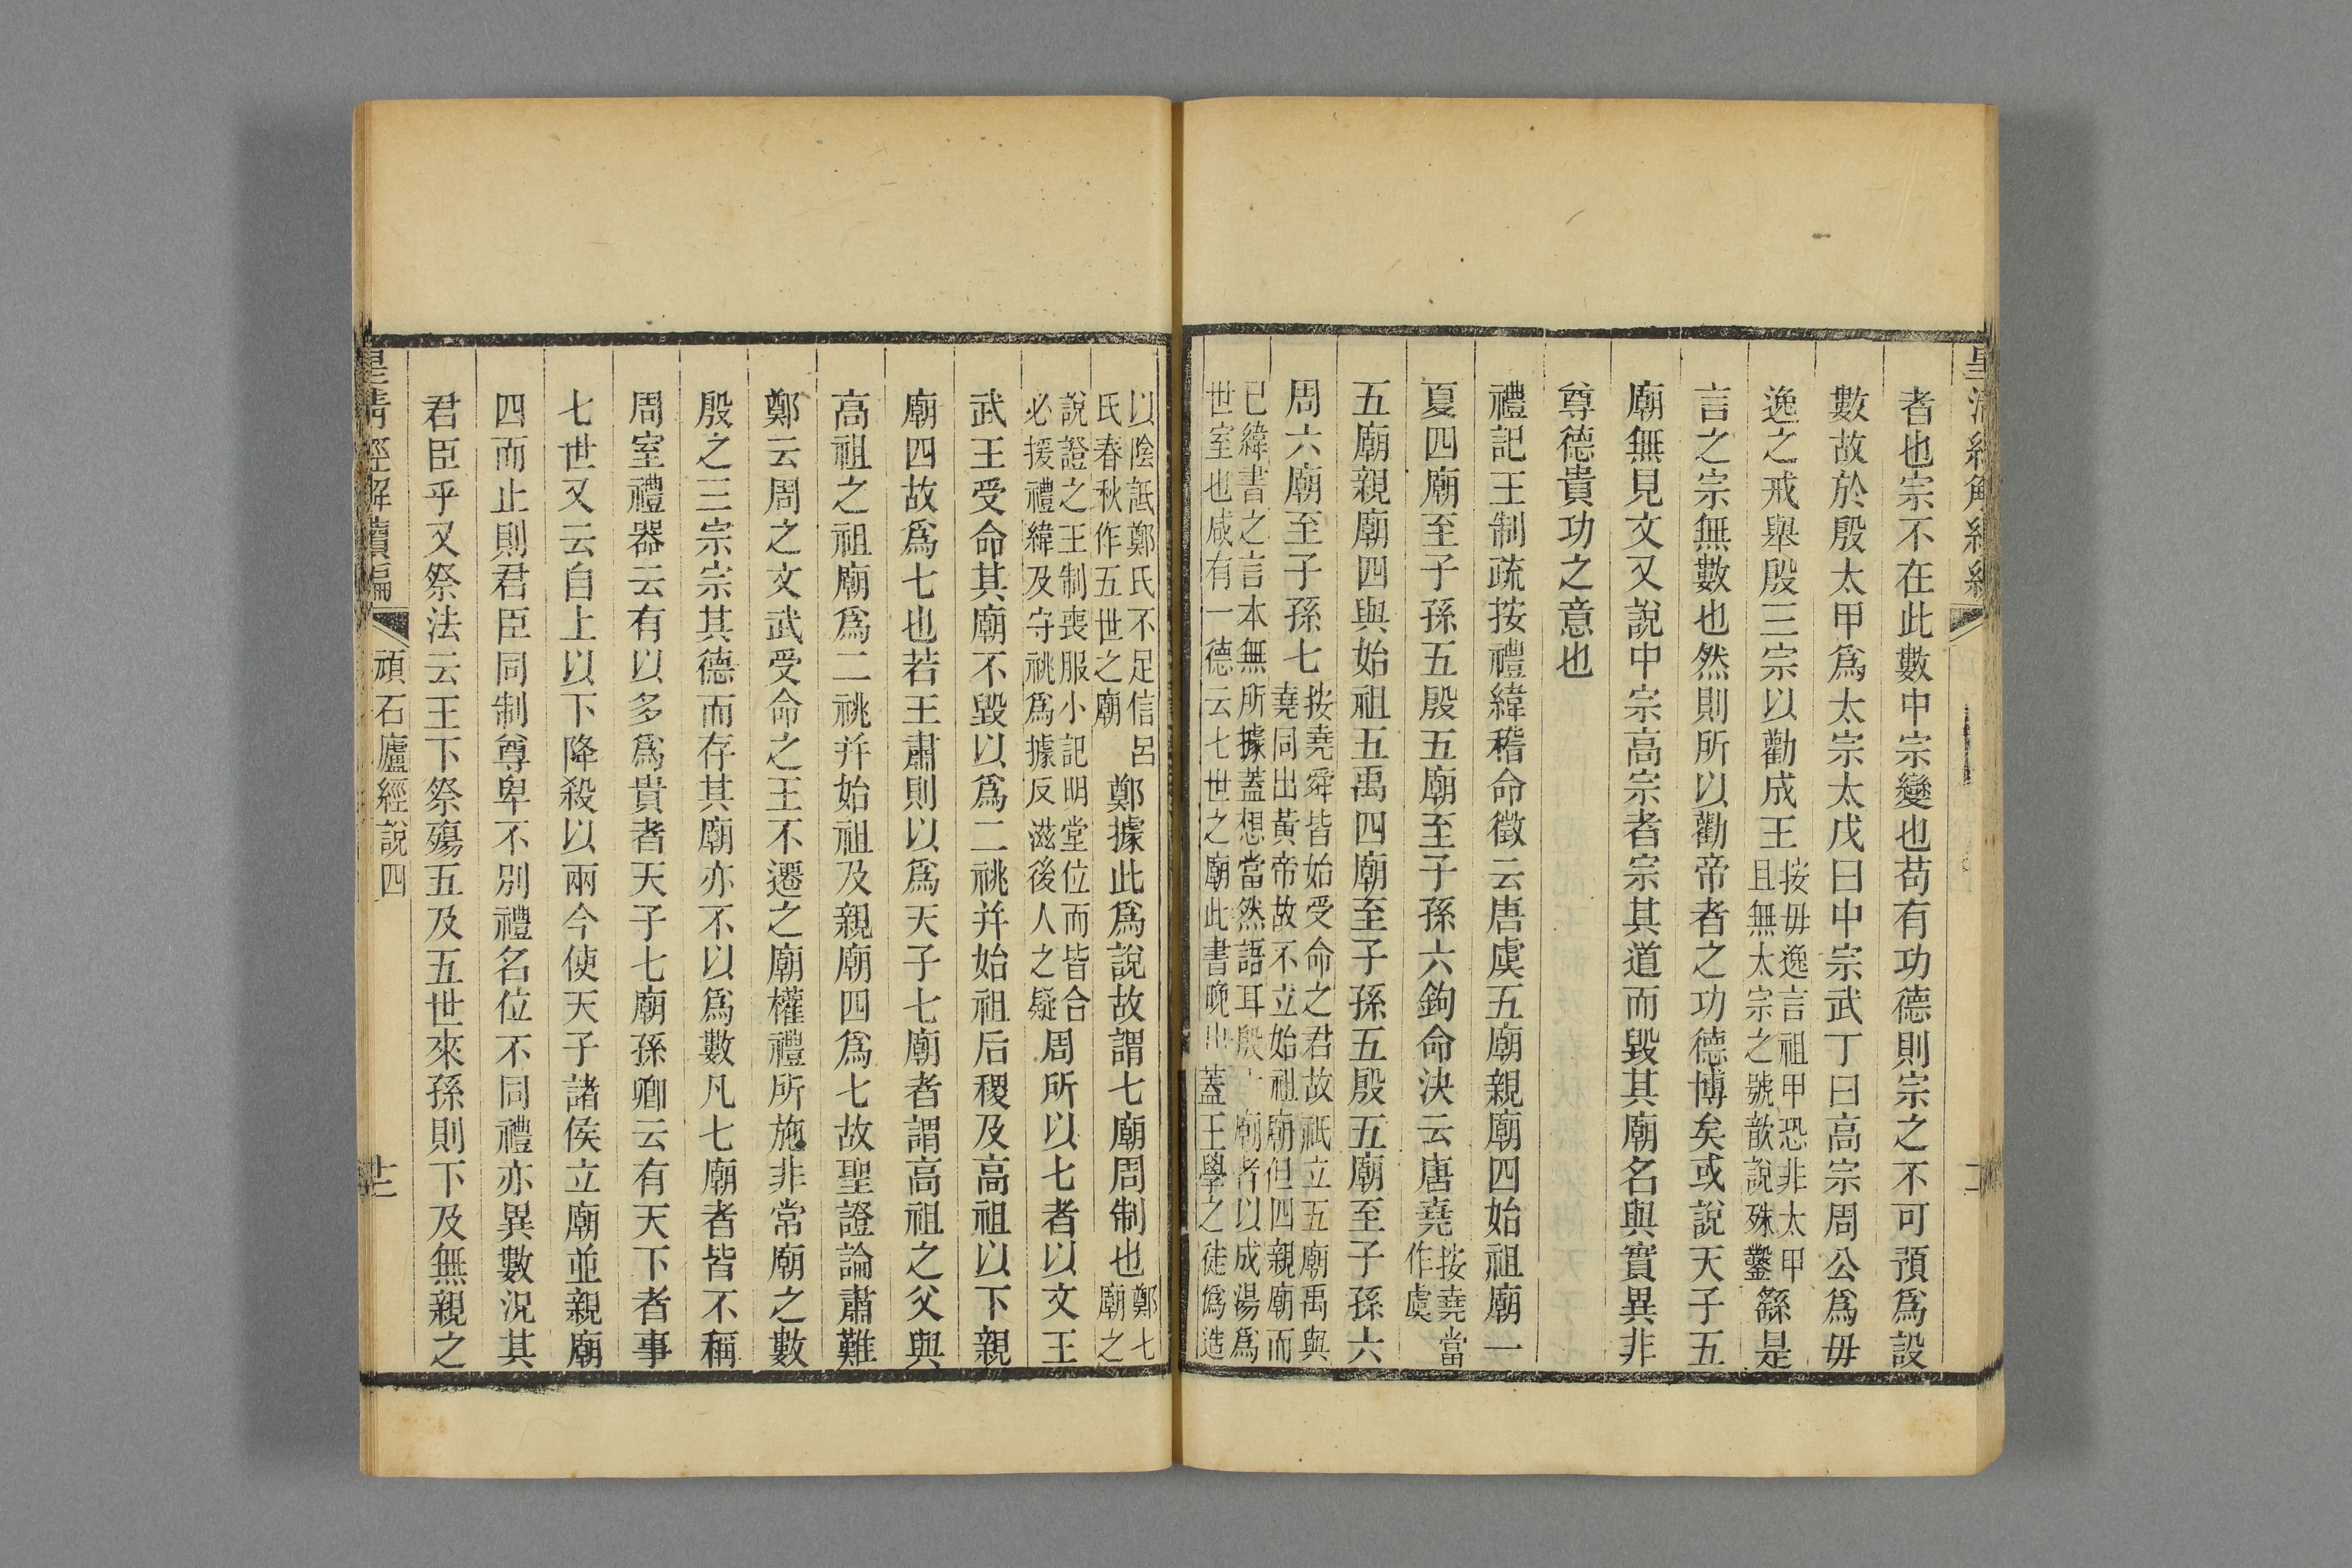 者也宗不在此數中宗變也苟有功德則宗之不可預爲設
數故於殷太甲爲太宗太戊曰中宗武丁曰高宗周公爲毋
逸之戒舉殷三宗以勸成王按毋逸言祖甲恐非太甲且無太宗之號歆說殊鑿繇是
言之宗無數也然則所以勸帝者之功德博矣或說天子五
廟無見文又說中宗高宗者宗其道而毀其廟名與實異非
尊德貴功之意也
禮記王制疏按禮緯稽命徵云唐虞五廟親廟四始祖廟一
夏四廟至子孫五殷五廟至子孫六鉤命決云唐堯按堯當作虞
五廟親廟四與始祖五禹四廟至子孫五殷五廟至子孫六
周六廟至子孫七按堯舜皆始受命之君故祇立五廟禹與堯同出黃帝故不立始祖廟但四親廟而
已緯書之言本無所據蓋想當然語耳殷廟者以成湯爲世室也咸有一德云七世之廟此書晚出蓋王學之徒僞造
以陰詆鄭氏不足信呂氏春秋作五世之廟鄭據此爲說故謂七廟周制也鄭七廟之
說證之王制喪服小記明堂位而皆合必援禮緯及守祧爲據反滋後人之疑周所以七者以文王
武王受命其廟不毀以爲二祧并始祖后稷及高祖以下親
廟四故爲七也若王肅則以爲天子七廟者謂高祖之父與
高祖之祖廟爲二祧并始祖及親廟四爲七故聖證論肅難
鄭云周之文武受命之王不遷之廟權禮所施非常廟之數
殷之三宗宗其德而存其廟亦不以爲數凡七廟者皆不稱
周室禮器云有以多爲貴者天子七廟孫卿云有天下者事
七世又云自上以下降殺以兩今使天子諸侯立廟並親廟
四而止則君臣同制尊卑不別禮名位不同禮亦異數況其
君臣乎又祭法云王下祭殤五及五世來孫則下及無親之
皇清經解續編 頑石廬經說四